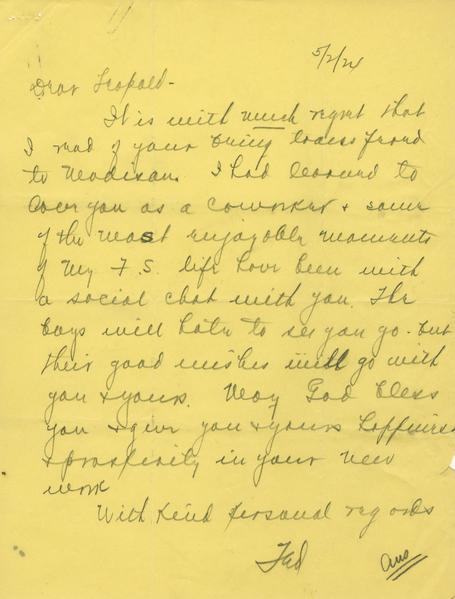 5/2/24
Dear Leopold -
It is with much regret that
I read of your being transferred
to Madison. I had learned to
love you as a coworker & some
of the most enjoyable moments
of my F.S. life have been with
a social chat with you. The
boys will hate to see you go - but
their good wishes will go with
you & yours. May God bless
you & give you & yours happiness
& prosperity in your new
work
With kind personal regards
Ans